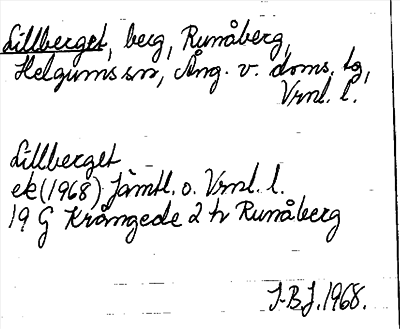 Lillberget, berg, Runåberg,
Helgums sn, Ång. v. doms. tg,
Vrnl. l.
Lillberget
ek (1968) Jämtl. o. Vrnl. l.
19 G Krångede 2 tv Runåberg
J-B.J. 1968.